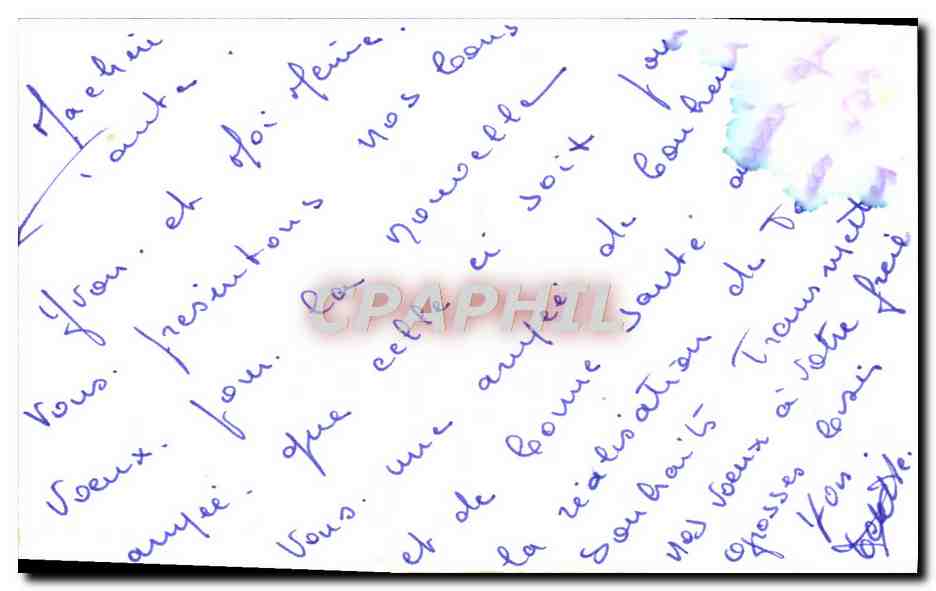 Ma chère
Tante.
Yvon. et Moi Même.
Vous. présentons nos bons
voeux. pour. la nouvelle
année. que cette ci soit pou
Vous. une année de bonheu
et de bonne santé.
la réalisation de
souhaits. Transmettez
nos voeux à votre frère
grosses bises
Yvon.
CPAPHIL